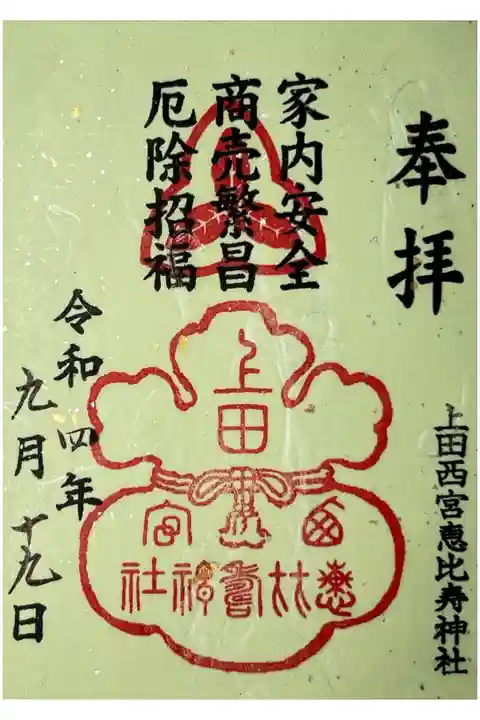 奉拝
家内安全
商売繁昌
厄除招福
上田
西宮恵比寿神社
上田西宮恵比寿神社
令和四年
九月十九日